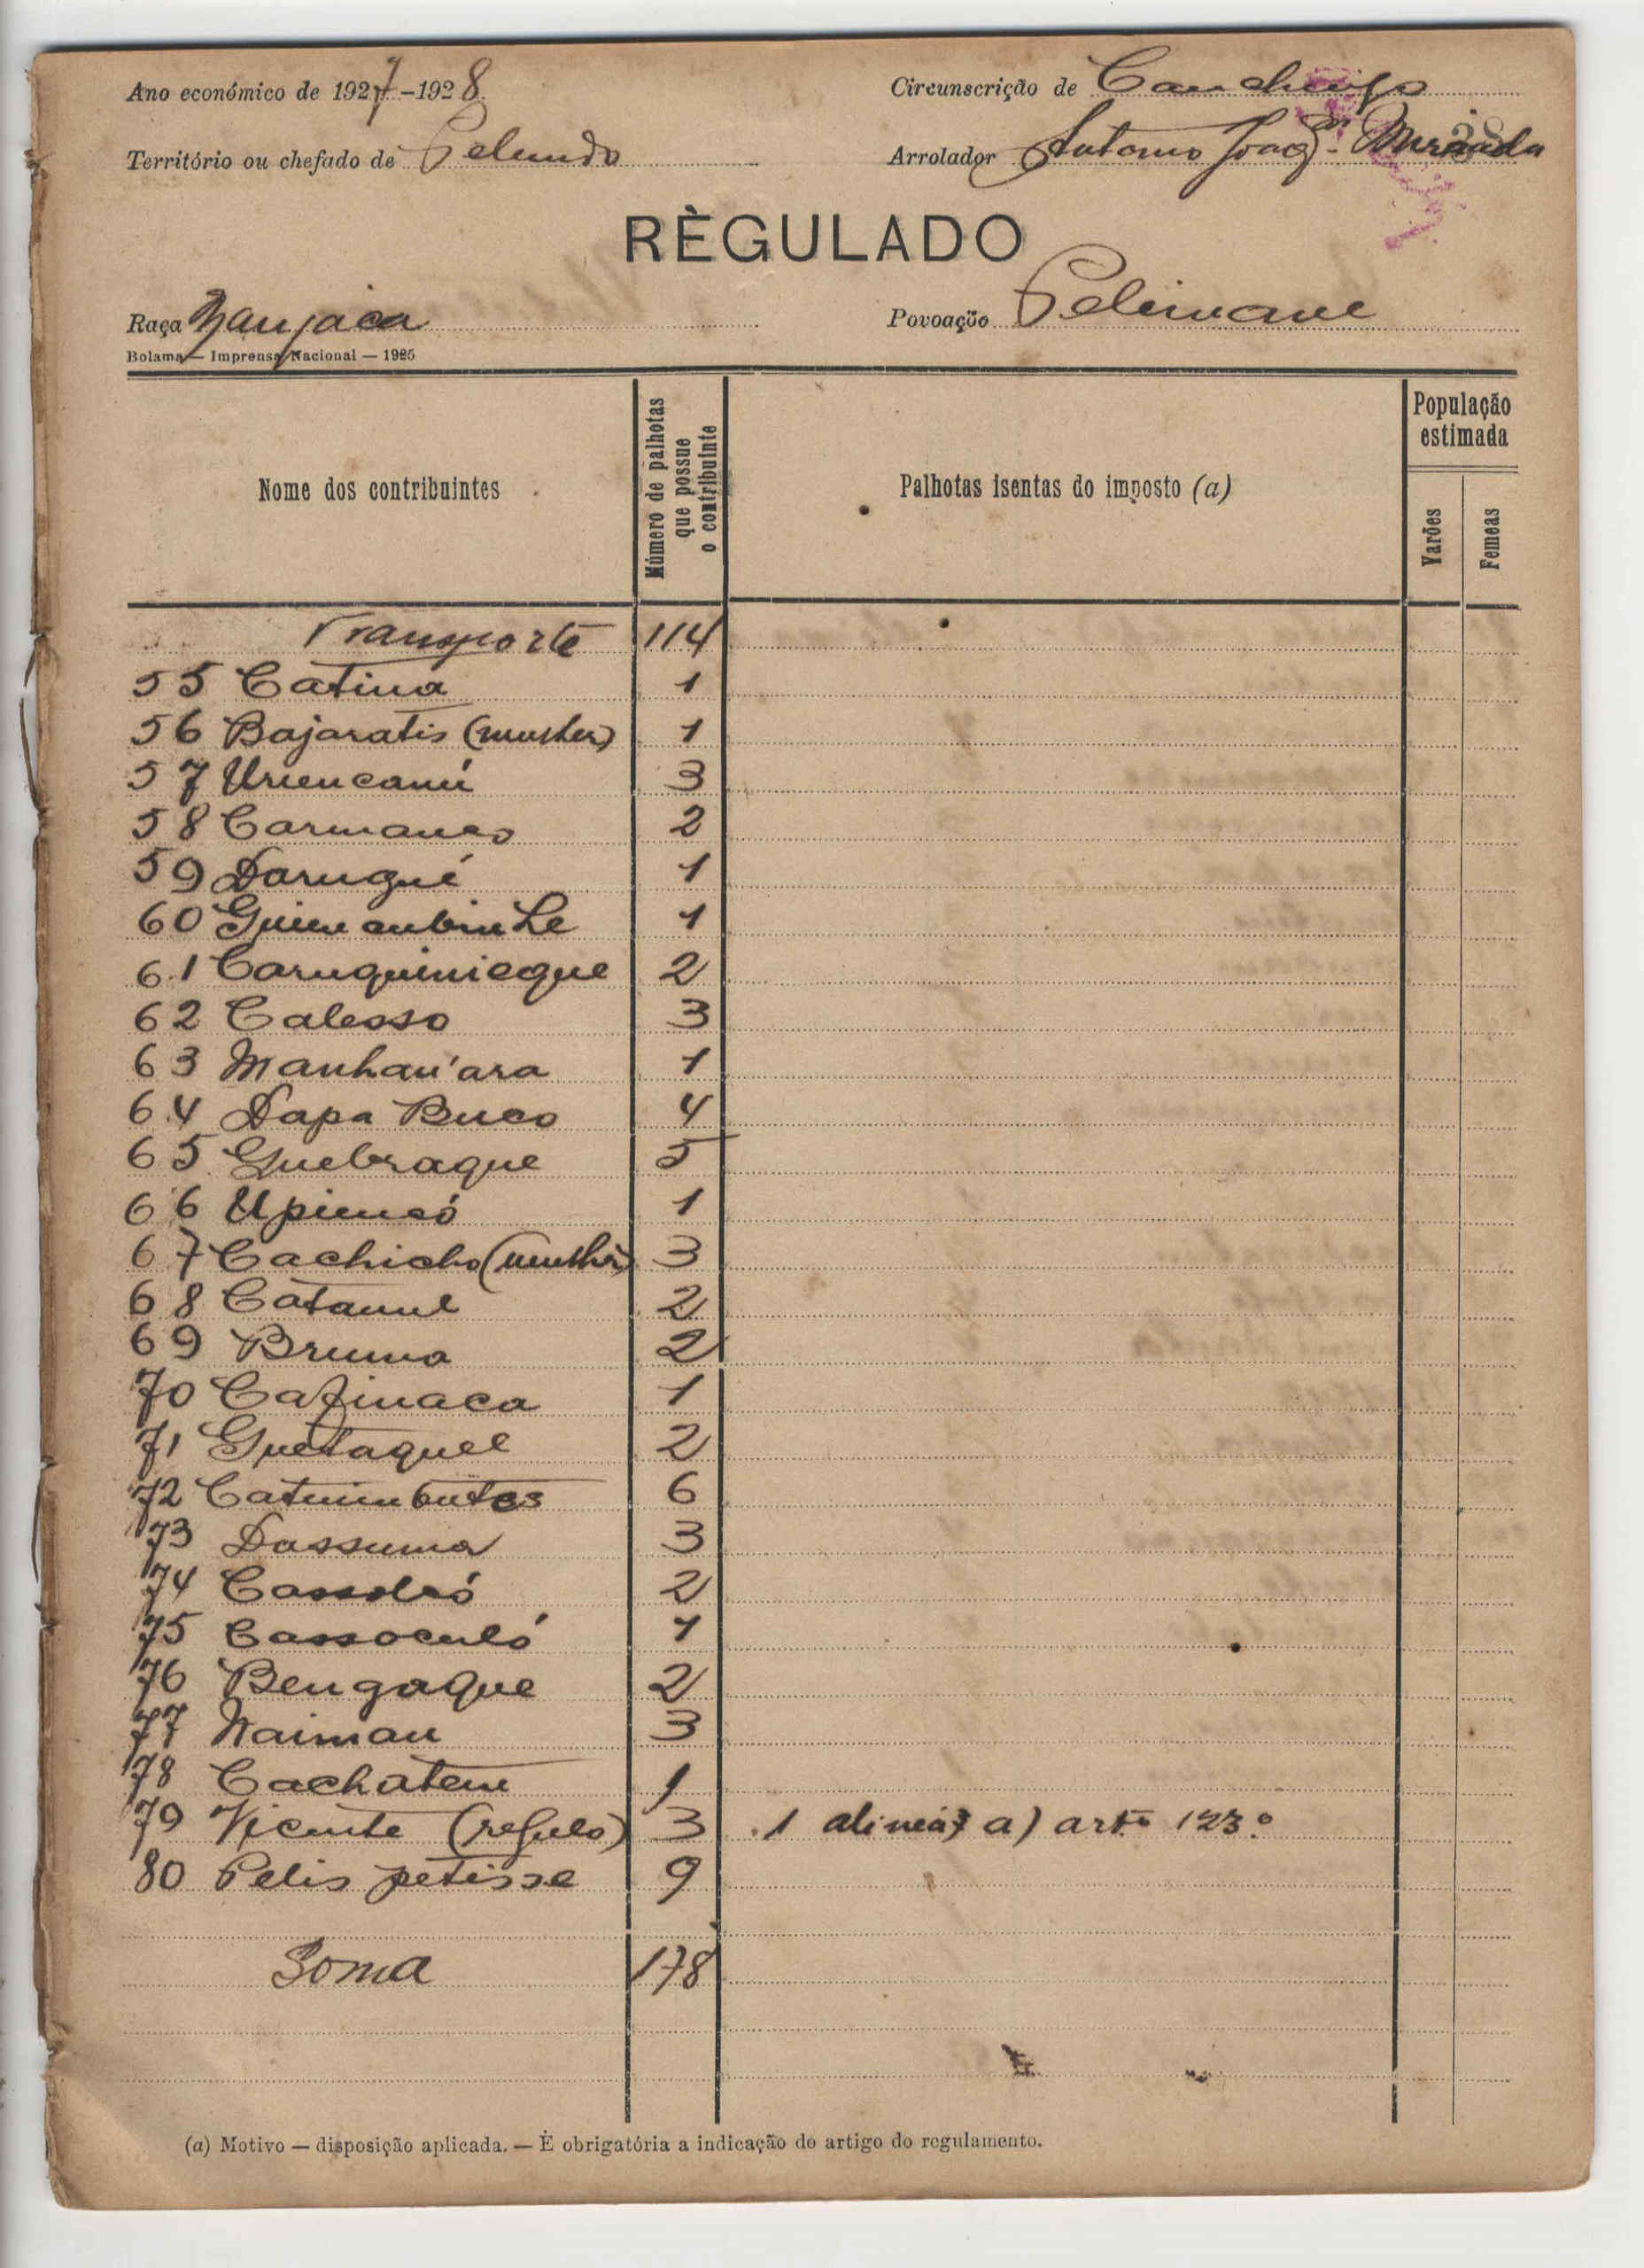 Ano económico de 1927-1928
Circunscrição de Canchungo
Território ou chefado de Pelundo
Arrolador Antonio Joaq.m Miranda
RÈGULADO
Raça Manjaca
Povoação
Bolama — Imprensa Nacional — 1925
Nome dos contribuintes
Número de palhotas que possue o contribuinte
Palhotas isentas do imposto (a)
População estimada
Varões
Femeas
Transporte 114
55 Catina 1
56 Bajaratis (mulher) 1
57 3
58 2
59 Darugué 1
60 1
61 2
62 Calesso 3
63 Manhan'ara 1
64 Dapa Buco 4
65 Quebraque 5
66 1
67 Cachicho (mulher) 3
68 2
69 2
70 Cafinaca 1
71 Guetaquel 2
72 6
73 Dassuma 3
74 2
75 Cassoculó 1
76 Bengaque 2
77 Naiman 3
78 Cachatene 1
79 Vicente (regulo) 3 1 alinea a) artº 123º
80 Pelis petisse 9
Soma 178
(a) Motivo — disposição aplicada. — È obrigatória a indicação do artigo do regulamento.